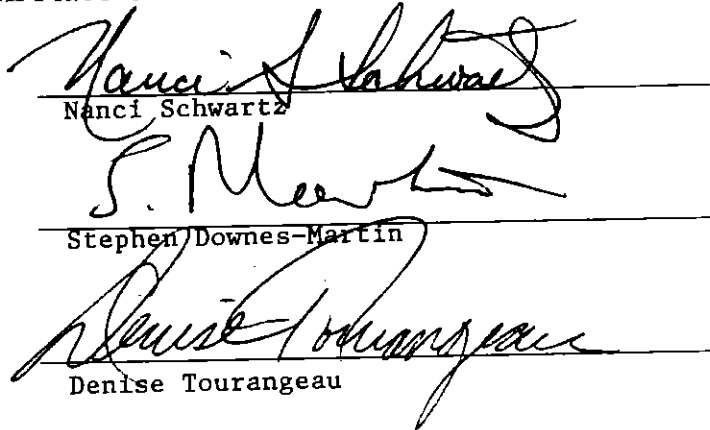 Nanci S Schwartz
Nanci Schwartz
S.
Stephen Downes-Martin
Denise Tourangeau
Denise Tourangeau